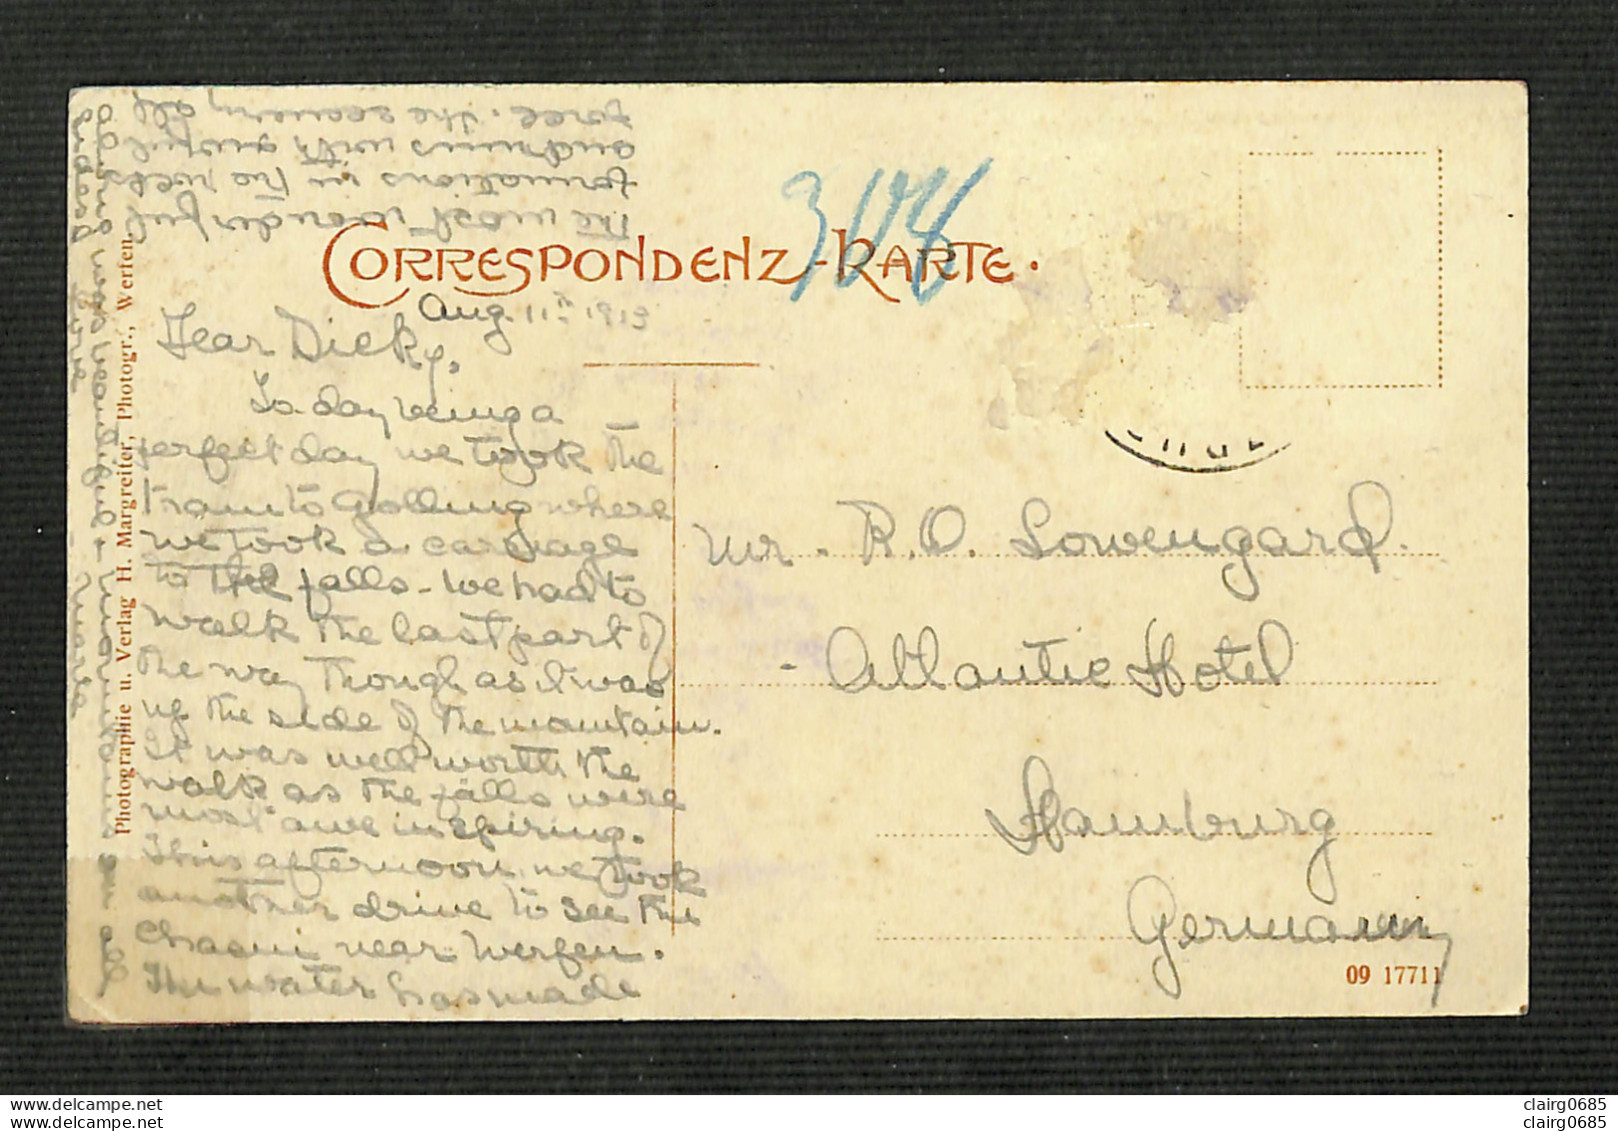 CORRESPONDENZ-KARTE.
308
Aug. 11th 1913
Dear Dicky,
To day being a
perfect day we took the
train to Golling where
we took a carriage
to the falls - we had to
walk the last part of
the way though as it was
up the side of the mountain.
It was well worth the
walk as the falls were
most awe inspiring.
This afternoon we took
another drive to see the
Chasm near Werfen.
The water has made
the most wonderful
formations in the rocks
and runs with awful
force. The scenery all
along was beautiful &
indeed
Love
Photographie u. Verlag H. Margreiter, Photogr., Werfen.
Mr. R. O. Lowengard.
Atlantic Hotel
Hamburg
Germany
09 17711
clairg0685
clairg0685
clairg0685
clairg0685